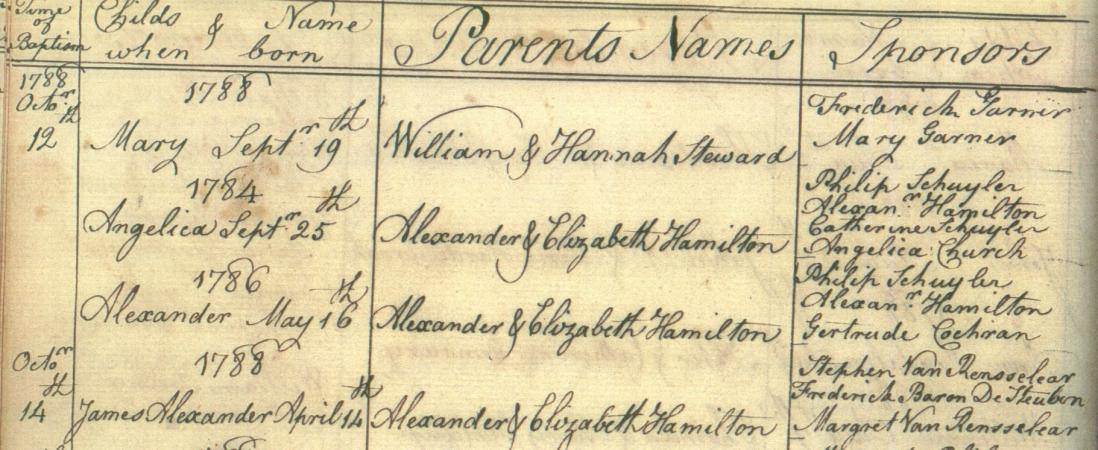 Time of Baptism
Childs & Name when born
Parents Names
Sponsors
1788
Octo.r
12th
1788
Mary Sept.r 19th
William & Hannah Steward
Frederick Garner
Mary Garner
1784
Angelica Sept.r 25th
Alexander & Elizabeth Hamilton
Philip Schuyler
Alexan.r Hamilton
Catherine Schuyler
Angelica Church
1786
Alexander May 16th
Alexander & Elizabeth Hamilton
Philip Schuyler
Alexan.r Hamilton
Gertrude Cochran
Octo.r
14th
1788
James Alexander April 14th
Alexander & Elizabeth Hamilton
Stephen Van Rensselear
Frederick Baron De Steuben
Margret Van Rensselear